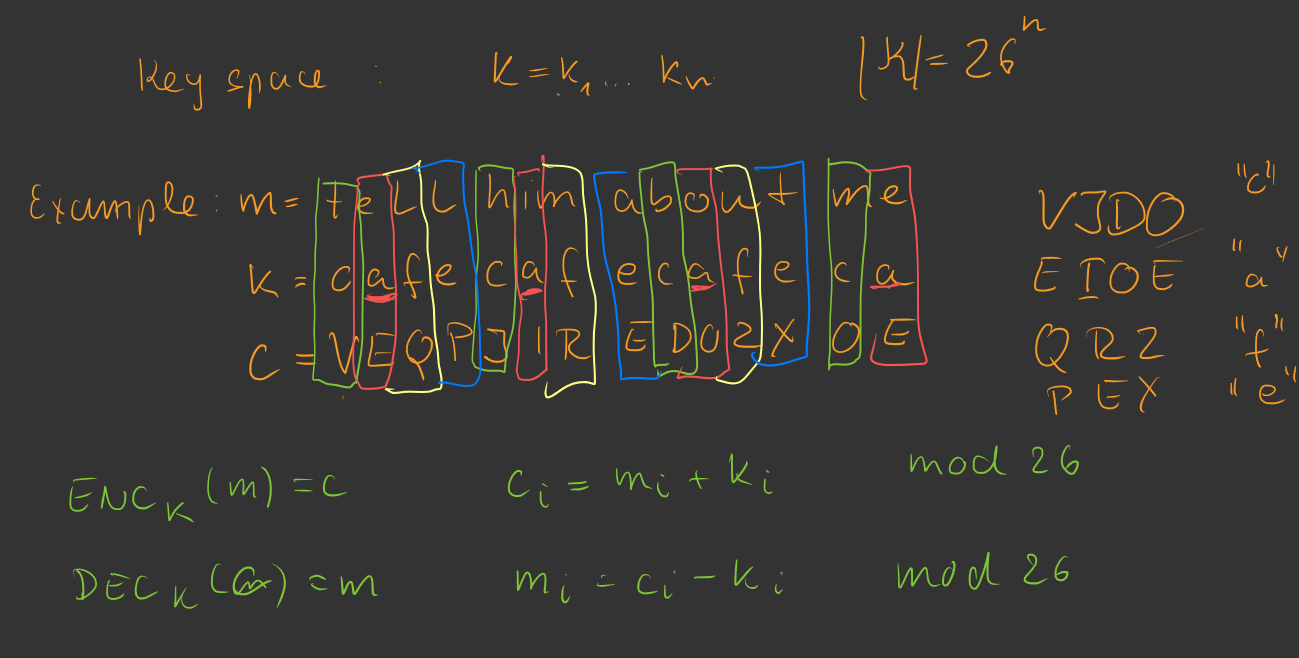 Key space : K = k₁ ... kₙ |K| = 26ⁿ
Example: m = teLL him about me
K = cafe caf ecafe ca
C = VEQP JIR EDOZX OE
VJDO "c"
EIOE "a"
QRZ "f"
PEX "e"
ENC_K (m) = c cᵢ = mᵢ + kᵢ mod 26
DEC_K ( ) = m mᵢ = cᵢ - kᵢ mod 26